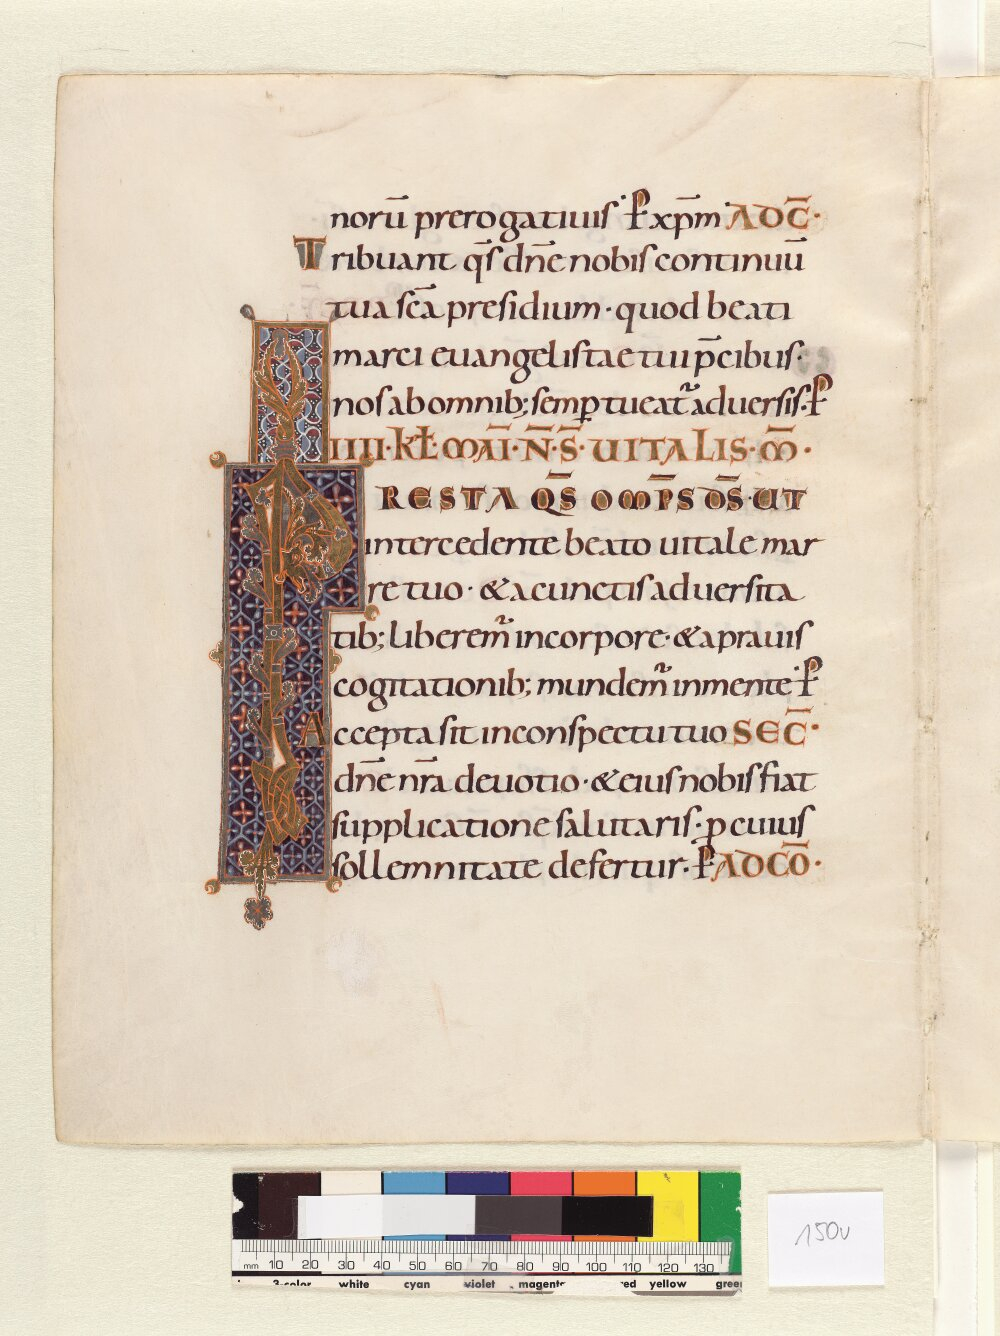 norū prerogatiuis· ꝑ xp̄m AD C̄·
Tribuant qs̄ dn̄e nobis continuū
tua sc̄a presidium· quod beati
marci euangelistae tui p̄cibus·
nos ab omnib; semp tueat᷑ aduersis· ꝑ
IIII· KŁ· MAĪ· N̄· S̄· UITALIS· M̄·
PRESTA QS̄ OMP̄S DS̄· UT
intercedente beato uitale mar
re tuo· & a cunctis aduersita
tib; liberem᷑ in corpore· & a prauis
cogitationib; mundem᷑ in mente· ꝑ
Accepta sit in conspectu tuo SEC̄·
dn̄e nr̄a deuotio· & eius nobis fiat
supplicatione salutaris· ꝓ cuius
sollemnitate defertur· ꝑ AD CŌ·
150v
mm 10 20 30 40 50 60 70 80 90 100 110 120 130
3-color white cyan violet magenta red yellow green